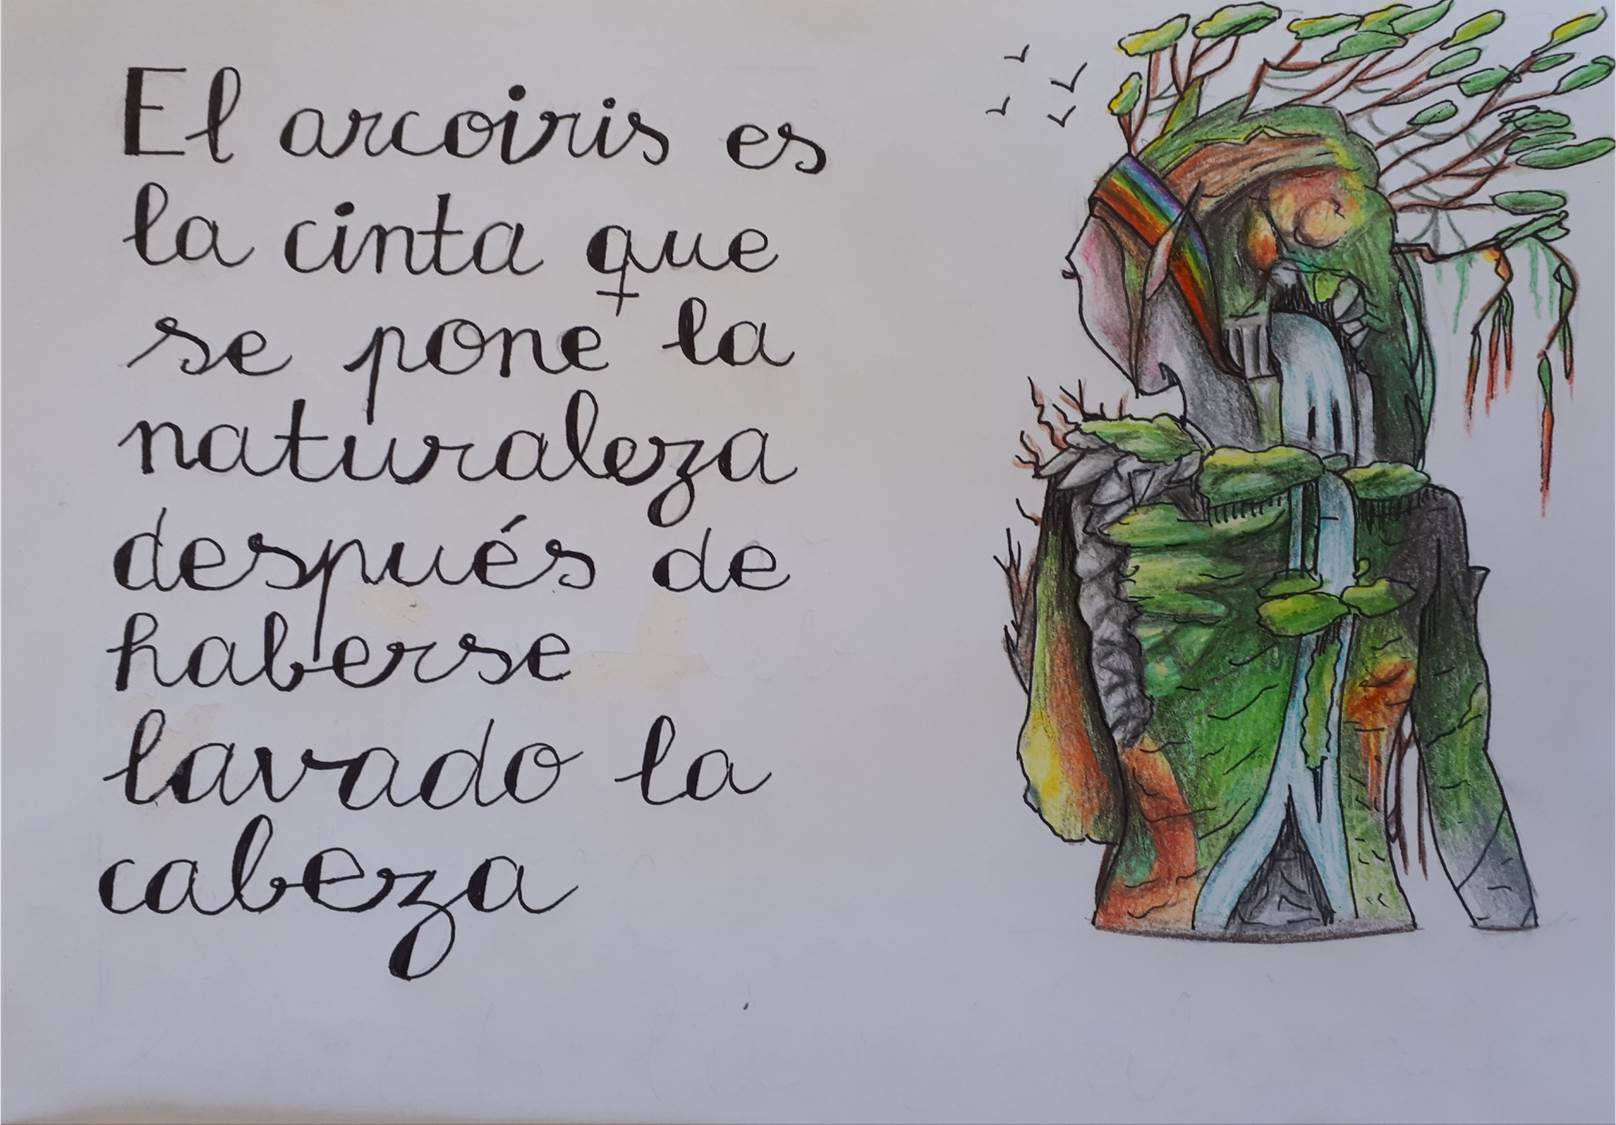 El arcoiris es
la cinta que
se pone la
naturaleza
después de
haberse
lavado la
cabeza